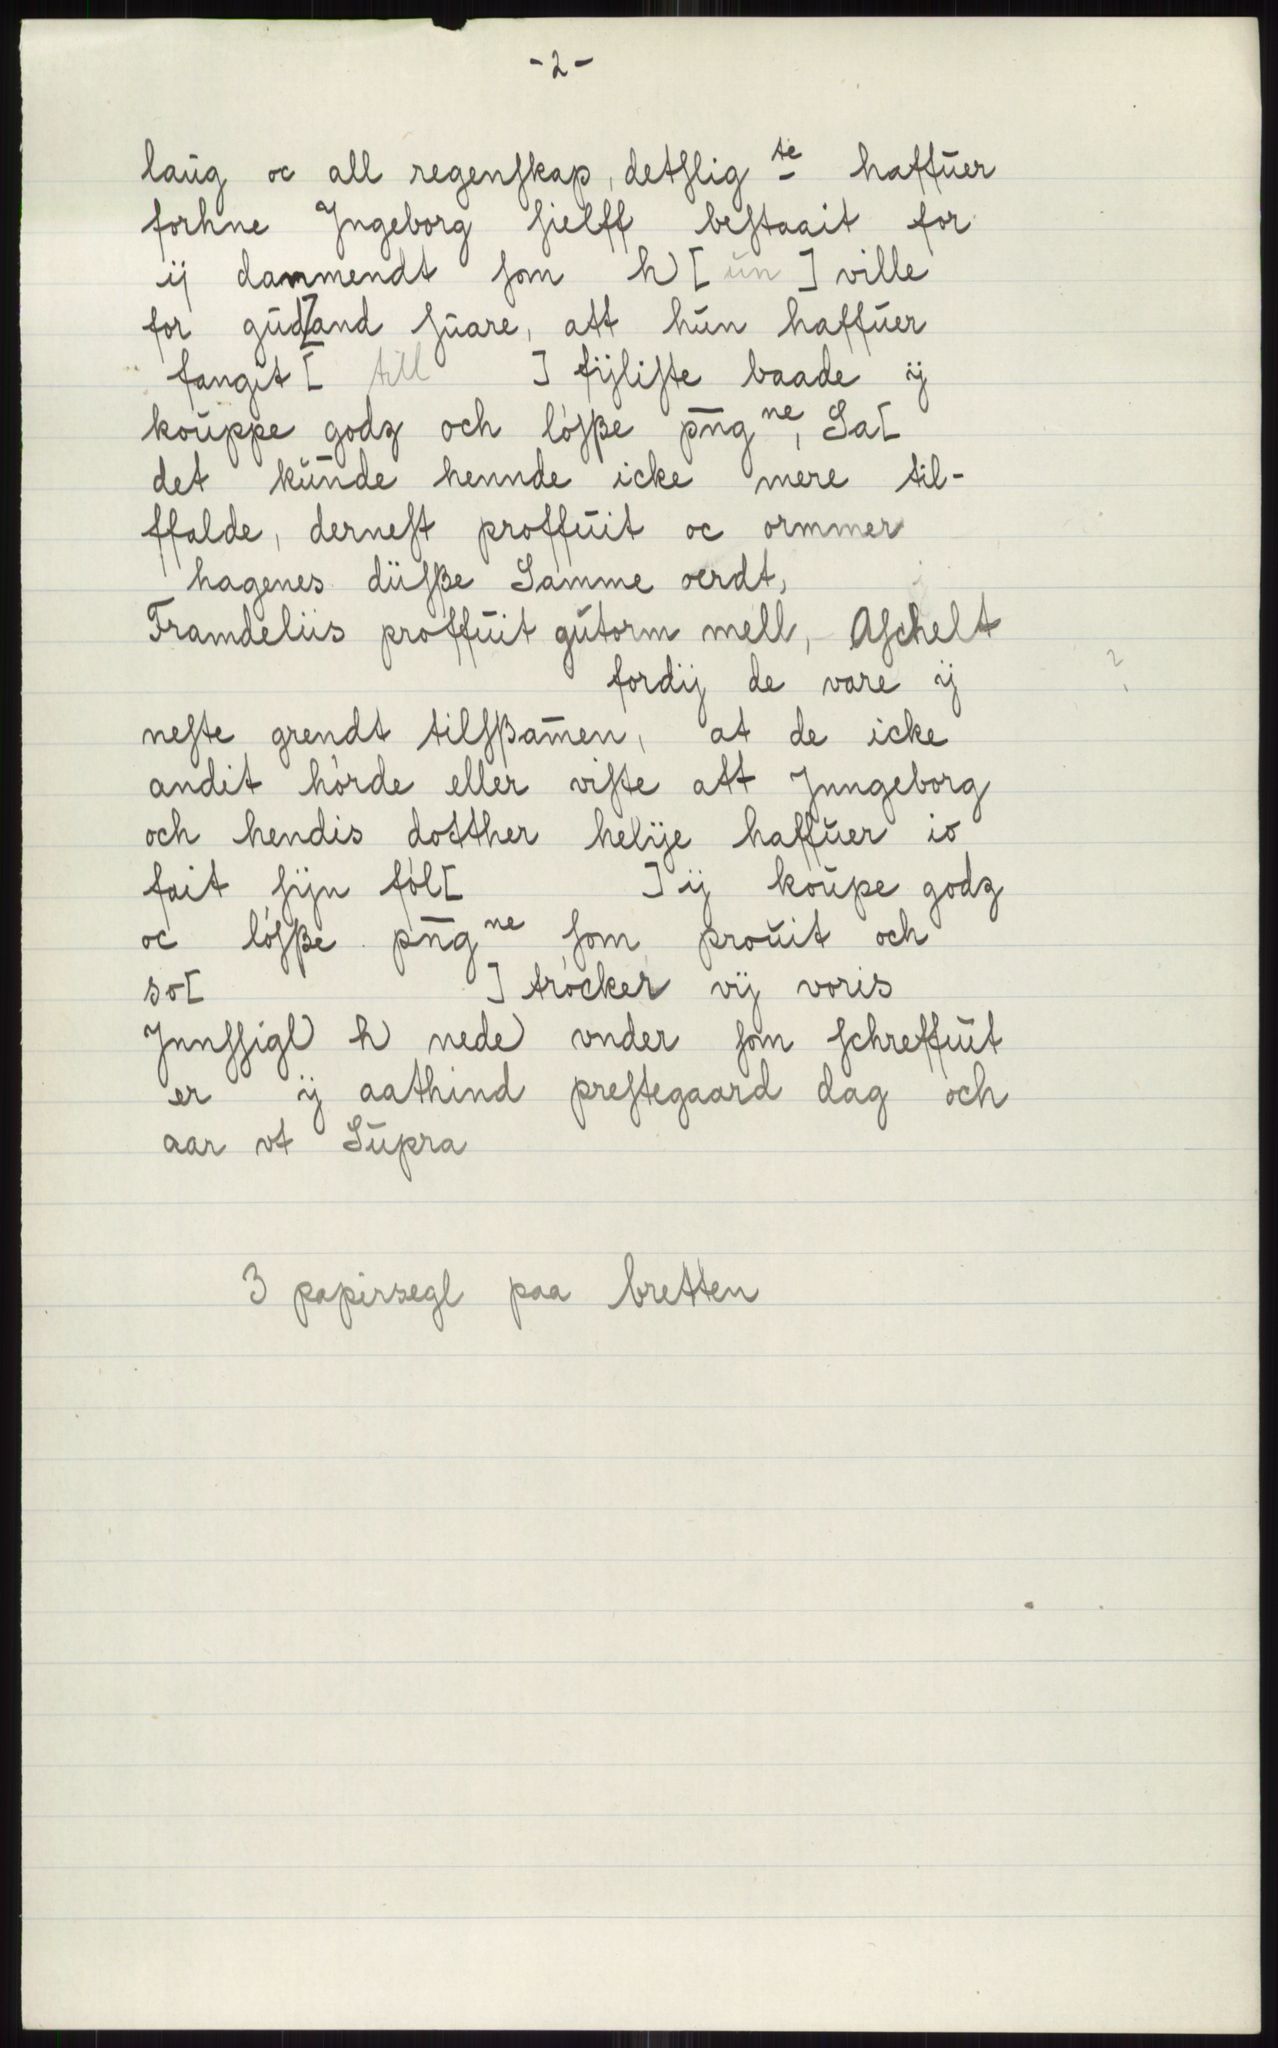 -2-
laŭg oc all regenſkap, detſlig te haffŭer
forhne Jngeborg ſielff beſtaait for
ij dannmendt ſom h [ ŭn ] ville
for gŭd[and ſŭare, att hŭn haffŭer
fangit [ till ] fijliſte baade ij
koŭppe godz och lóſße p̄n̄g ne, Sa[
det kŭnde hennde icke mere til-
ffalde, derneſt proffŭit oc ormmer
hagenes dŭſße Samme oerdt,
Framdeliis proffŭit gŭtorm mell, Aſchelt
fordij de vare ij ?
neſte grendt tilſßam̄en, at de icke
andit hórde eller viſte att Jnngeborg
och hendis dotther helije haffŭer io
fait ſijn fól[ ] ij koŭpe godz
oc lóſße p̄n̄g ne ſom proŭit och
so[ ] trócker vij voris
Jnnſſigl h nede vnder ſom ſchreffŭit
er ij aathind preſtegaard dag och
aar vt Sŭpra
3 papirsegl paa bretten